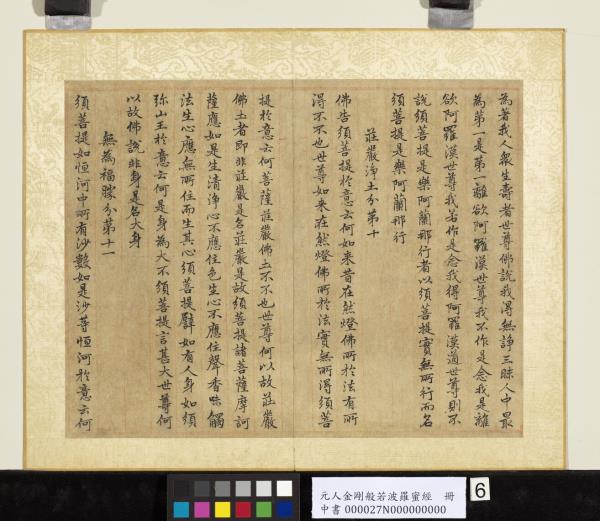 為著我人衆生壽者世尊佛說我得無諍三昧人中最
為第一是第一離欲阿羅漢世尊我不作是念我是離
欲阿羅漢世尊我若作是念我得阿羅漢道世尊則不
說須菩提是樂阿蘭那行者以須菩提實無所行而名
須菩提是樂阿蘭那行
莊嚴淨土分第十
佛告須菩提於意云何如來昔在然燈佛所於法有所
得不不也世尊如來在然燈佛所於法實無所得須菩
提於意云何菩薩莊嚴佛土不不也世尊何以故莊嚴
佛土者即非莊嚴是名莊嚴是故須菩提諸菩薩摩訶
薩應如是生清淨心不應住色生心不應住聲香味觸
法生心應無所住而生其心須菩提譬如有人身如須
彌山王於意云何是身為大不須菩提言甚大世尊何
以故佛說非身是名大身
無為福勝分第十一
須菩提如恒河中所有沙數如是沙等恒河於意云何
元人金剛般若波羅蜜經 冊
中書 000027N000000000
6